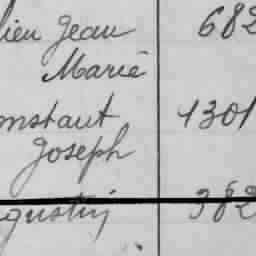 lien Jean 682
Marie
onstant 1301
Joseph
gustin 382